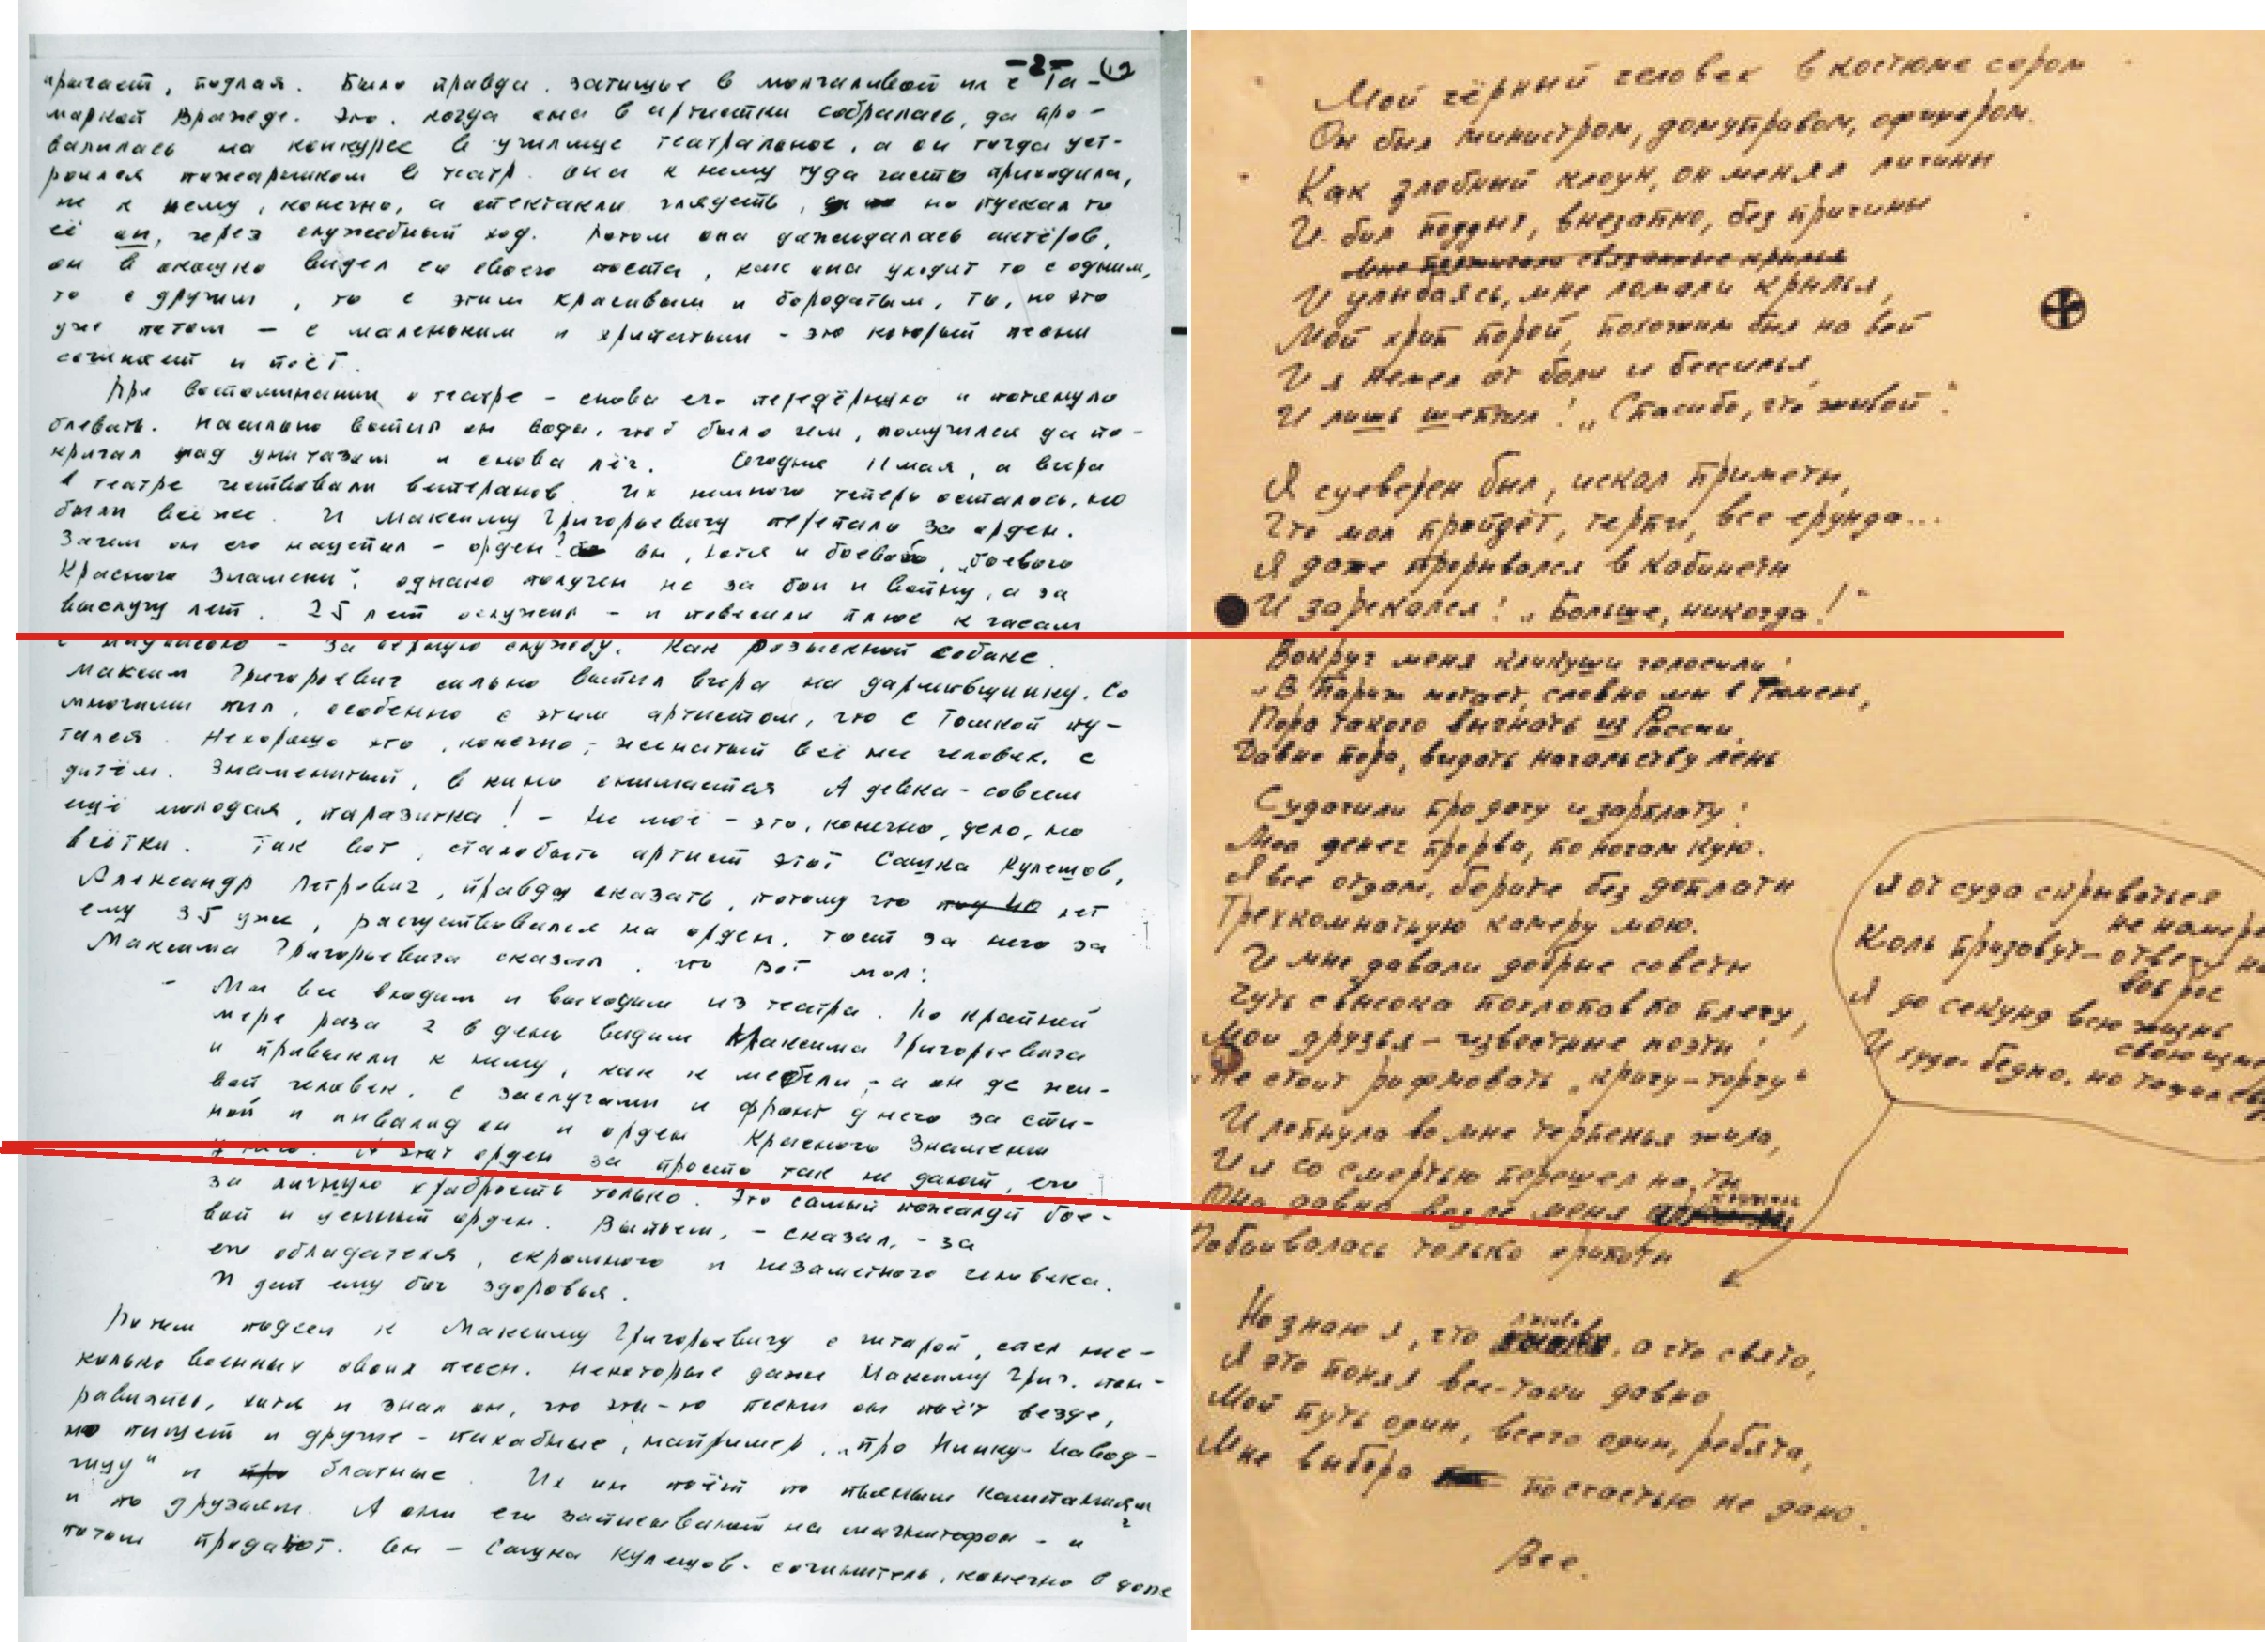 -2- (12)
рычает, подлая. Было правда. затишье в молчаливой их с Та-
маркой вражде. Это. когда она в артистки собралась, да про-
валилась на конкурсе в училище театральное, а он тогда уст-
роился пожарником в театр. Она к нему туда часто приходила,
не к нему, конечно, а спектакли глядеть, но пускал то
её он, через служебный ход. Потом она дожидалась актёров,
он в окошко видел со своего поста, как она уходит то с одним,
то с другим, то с этим красивым и бородатым, то, но это
уже потом — с маленьким и хрипатым - это который песни
сочиняет и поёт.
При воспоминании о театре - снова его передёрнуло и потянуло
блевать. Насильно выпил он воды, чтоб было чем, помучился да по-
кричал над унитазом и снова лёг. Сегодня 11 мая, а вчера
в театре чествовали ветеранов. Их немного теперь осталось, но
были всё же. И Максиму Григорьевичу перепало за орден.
Зачем он его нацепил - орден? он, хотя и боевой, „боевого
Красного Знамени", однако получен не за бои и войну, а за
выслугу лет. 25 лет отслужил - и повесили плюс к часам
с надписью - За верную службу. Как розыскной собаке.
Максим Григорьевич сильно выпил вчера на дармовщинку. Со
многими пил, особенно с этим артистом, что с Томкой пу-
тался. Нехорошо это, конечно, - женатый всё же человек, с
дитём. Знаменитый, в кино снимается А девка - совсем
ещё молодая, паразитка! - Не моё - это, конечно, дело, но
всётки. Так вот, сталобыть артист этот Сашка Кулешов,
Александр Петрович, правду сказать, потому что лет
ему 35 уже, расчувствовался на орден, тост за него за
Максима Григорьевича сказал, что вот мол:
- Мы все входим и выходим из театра. По крайней
мере раза 2 в день видим Максима Григорьевича
и привыкли к нему, как к мебели, - а он де жи-
вой человек, с заслугами и фронт у него за спи-
ной и инвалид он и орден Красного Знамени
у него. А этот орден за просто так не дают, его
за личную храбрость только. Это самый пожалуй бое-
вой и ценный орден. Выпьем, - сказал, - за
его обладателя, скромного и незаметного человека.
И дай ему бог здоровья.
Потом подсел к Максиму Григорьевичу с гитарой, спел нес-
колько военных своих песен. Некоторые даже Максиму Григ. пон-
равились, хотя и знал он, что эти-то песни он поёт везде,
но пишет и другие - похабные, например, „про Нинку-Навод-
чицу" и про блатные. Их он поёт по пьяным компаниям
и по друзьям. А они его записывают на магнитофон - и
потом продают. Он - Сашка Кулешов - сочинитель, конечно в доме
Мой чёрный человек в костюме сером
Он был министром, домуправом, офицером.
Как злобный клоун, он менял личины
И бил поддых, внезапно, без причины
И улыбаясь, мне ломали крылья,
Мой хрип порой, похожим был на вой
И я немел от боли и бессилья
И лишь шептал: „Спасибо, что живой".
Я суеверен был, искал приметы,
Что мол пройдёт, терпи, все ерунда...
Я даже прорывался в кабинеты
И зарекался: „Больше, никогда!"
Вокруг меня кликуши голосили:
„В Париж мотает, словно мы в Тюмень,
Пора такого выгнать из России
Давно пора, видать начальству лень
Судачили про дачу и зарплату:
Мол денег прорва, по ночам кую.
Я все отдам, берите без доплаты
Трехкомнатную камеру мою.
И мне давали добрые советы
Чуть свысока похлопав по плечу,
Мои друзья - известные поэты:
„Не стоит рифмовать „кричу-торчу"
И лопнула во мне терпенья жила,
И я со смертью перешел на ты
Она давно возле меня кружила
Побаивалась только хрипоты
Я от суда скрываться
не намере
Коль призовут - отвечу на
вопрос
Я до секунд всю жизнь
свою изме
И худо-бедно, но тащил
Но знаю я, что лживо, а что свято,
Я это понял все-таки давно
Мой путь один, всего один, ребята,
Мне выбора по счастью не дано.
Все.